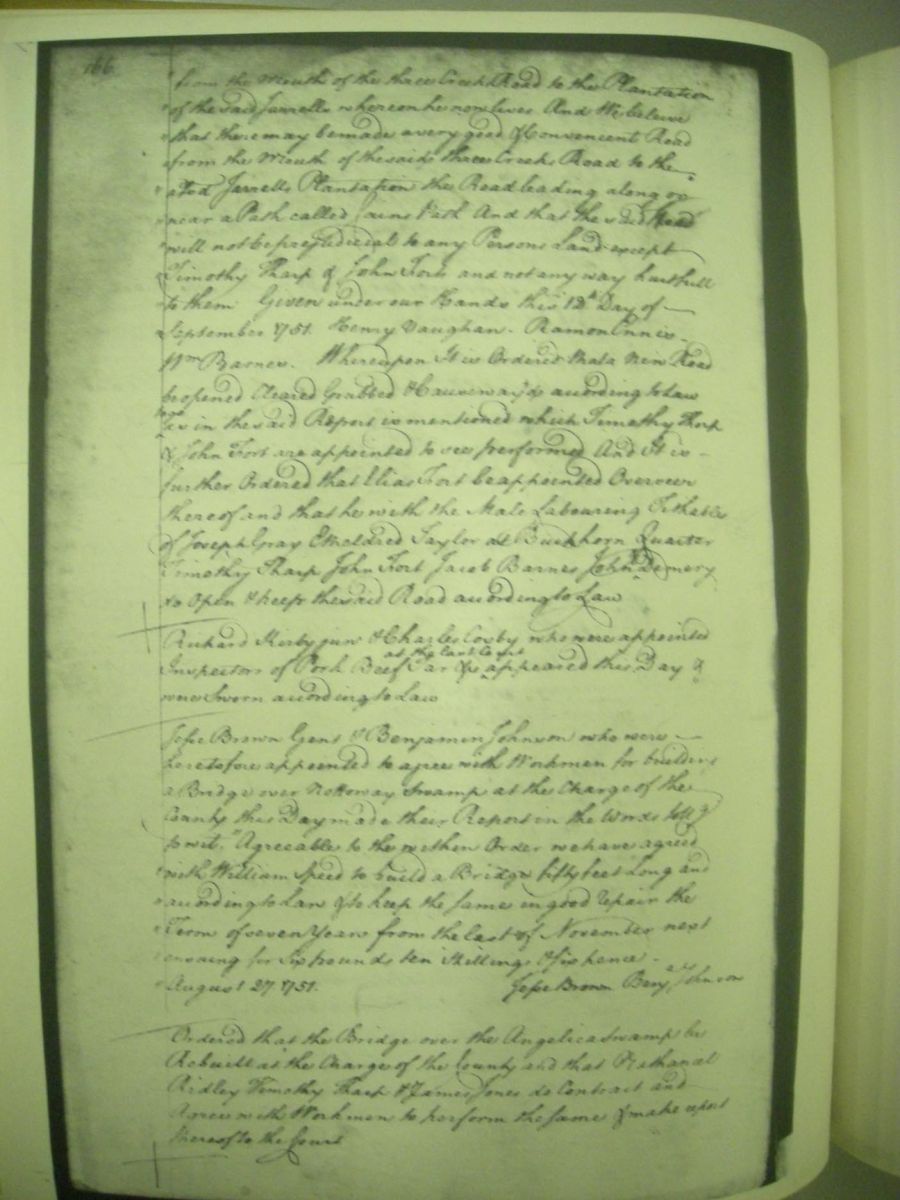 166
from the Mouth of the three Creeks Road to the Plantation
of the said Jarrells whereon he now lives And We beleive
that there may be made a very good & Convenient Road
from the Mouth of the said three Creeks Road to the
Jarrells Plantation the Road leading along or
near a Path called Path And that the said Road
will not be prejudicial to any Persons Land except
Timothy Tharp & John Fort and not any way hurtfull
to them Given under our Hands this 12th Day of
September 1751. Henry Vaughan. Ramon Innis.
Wm Barnes. Whereupon It is Ordered that a New Road
be opened Cleared Grubbed & Causeway'd according to Law
as in the said Report is mentioned which Timothy Tharp
& John Fort are appointed to see performed And It is
further Ordered that Elias Fort be appointed Overseer
thereof and that he with the Male Labouring Tithables
of Joseph Gray Etheldred Taylor at Buckhorn Quarter
Timothy Tharp John Fort Jacob Barnes John Demery
do Open & keep the said Road according to Law
Richard Kirby & Charles Cosby who were appointed
at the last Court
Inspectors of Pork Beef Tar &c appeared this Day &
were Sworn according to Law
Jesse Brown Gent & Benjamin Johnson who were
heretofore appointed to agree with Workmen for building
a Bridge over Nottoway Swamp at the Charge of the
County this Day made their Report in the Words
to wit. "Agreeable to the within Order we have agreed
with William Speed to build a Bridge fifty feet Long and
according to Law & to keep the same in good repair the
Term of seven Years from the last of November next
ensuing for Six pounds ten Shillings & sixpence.
August 27 1751. Jesse Brown Benja Johnson
Ordered that the Bridge over the Angelica Swamp be
Rebuilt at the Charge of the County and that Nathanal
Ridley Timothy Tharp & James Jones do Contract and
Agree with Workmen to perform the same & make report
thereof to the Court